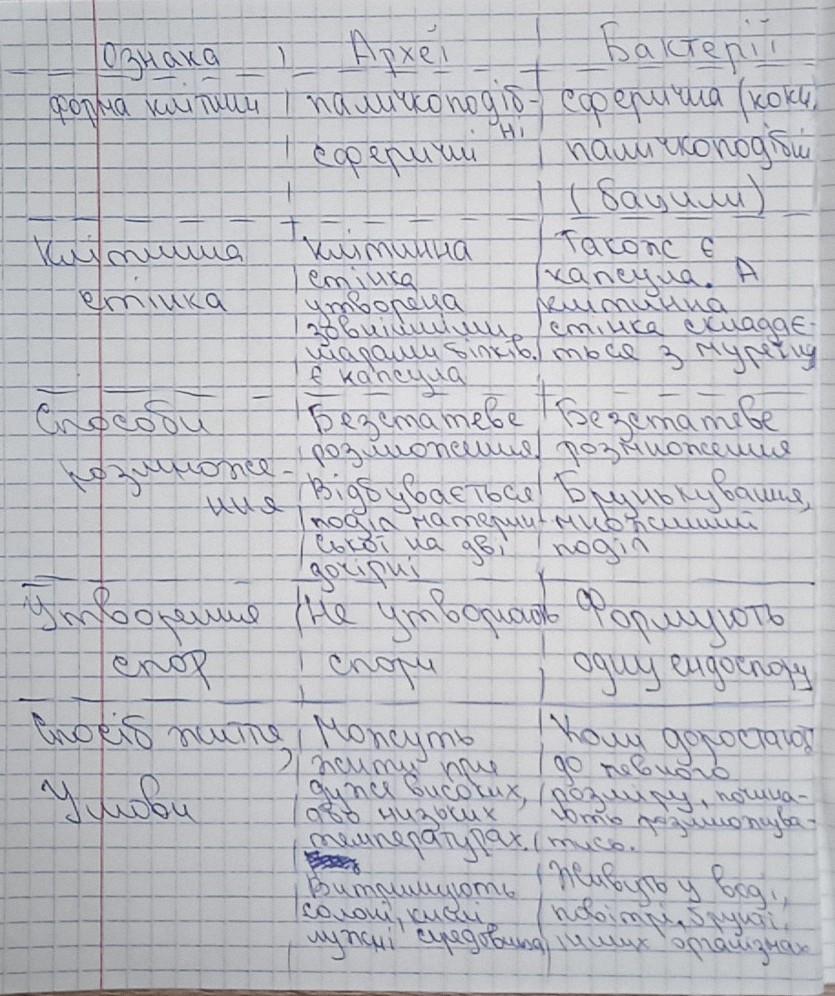 Ознака Археї Бактерії
Форма клітини паличкоподіб- сферична (коки,
ні
сферичні паличкоподібні
(бацили)
Клітинна клітинна Також є
стінка капсула. А
стінка утворена клітинна
зовнішніми стінка складає-
шарами білків. ться з муреїну
є капсула
Способи Безстатеве Безстатеве
розмноження. розмноження
розмноже-
Відбувається Брунькування,
ння
поділ материн- множинний
ської на дві поділ
дочірні
Утворення Не утворюють Формують
спор спори одну ендоспору
Спосіб життя, Можуть Коли доростають
жити при до певного
дуже високих, розміру, почина-
Умови
або низьких ють розмножува-
температурах. тись.
Витримують Живуть у воді,
солоні, кислі, повітрі, ґрунті,
лужні середовища інших організмах